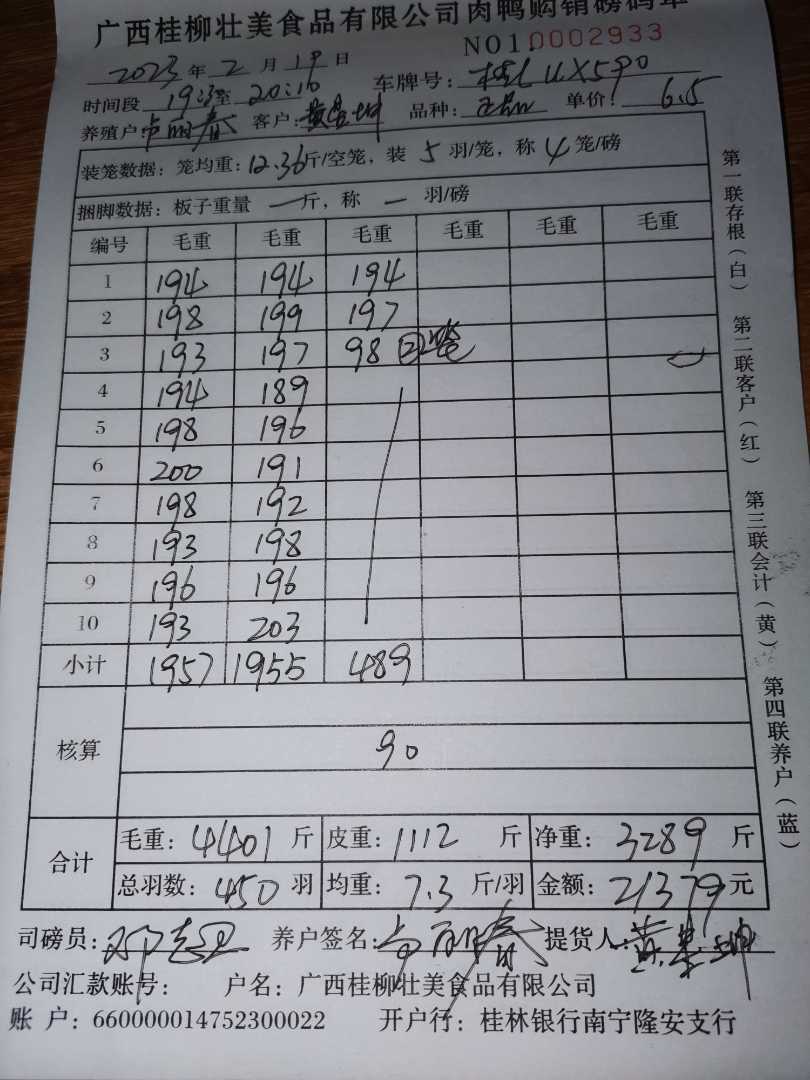 广西桂柳壮美食品有限公司肉鸭购销磅码单
NO10002933
2023年2月19日 车牌号：桂LUX590
时间段 19:3至20:16
养殖户 卢丽春 客户： 品种： 单价： 6.5
装笼数据：笼均重：12.36斤/空笼，装 5 羽/笼，称 4 笼/磅
捆脚数据：板子重量 一 斤，称 一 羽/磅
编号 毛重 毛重 毛重 毛重 毛重 毛重
1 194 194 194
2 198 199 197
3 193 197 98 ②笼
4 194 189
5 198 196
6 200 191
7 198 192
8 193 198
9 196 196
10 193 203
小计 1957 1955 489
核算 90
合计 毛重：4401斤 皮重：1112斤 净重：3289斤
总羽数：450羽 均重：7.3斤/羽 金额：21379元
司磅员： 养户签名：卢丽春 提货人：
公司汇款账号： 户名：广西桂柳壮美食品有限公司
账 户：660000014752300022 开户行：桂林银行南宁隆安支行
第一联存根（白） 第二联客户（红） 第三联会计（黄） 第四联养户（蓝）